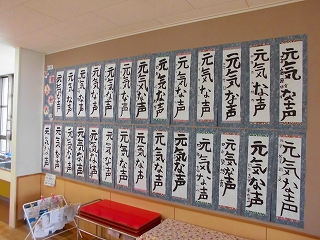 元気な声
元気な声
元気な声
元気な声
元気な声
元気な声
元気な声
元気な声
元気な声
元気な声
元気な声
元気な声
元気な声
元気な声
元気な声
元気な声
元気な声
元気な声
元気な声
元気な声
元気な声
元気な声
元気な声
元気な声
元気な声
元気な声